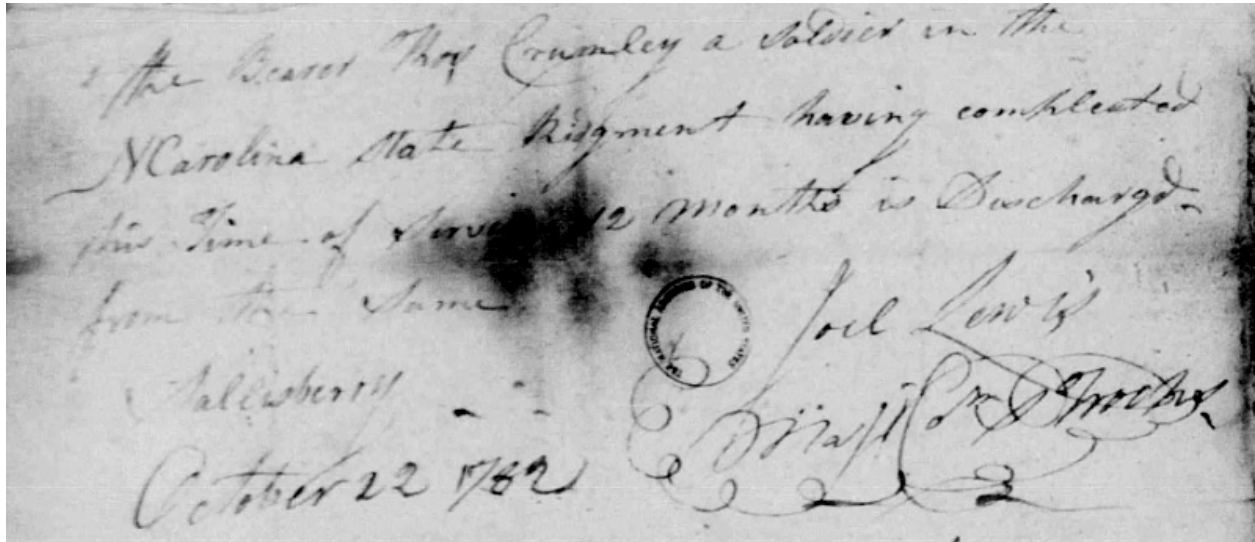 the Bearer Thos Crumley a Soldier in the
NCarolina State Ridgment having compleated
his Time of Service 12 Months is Dischargd
from the Same
Joel Lewis
Sallisberry
Majr Com
October 22 1782
THE NATIONAL ARCHIVES OF THE UNITED STATES